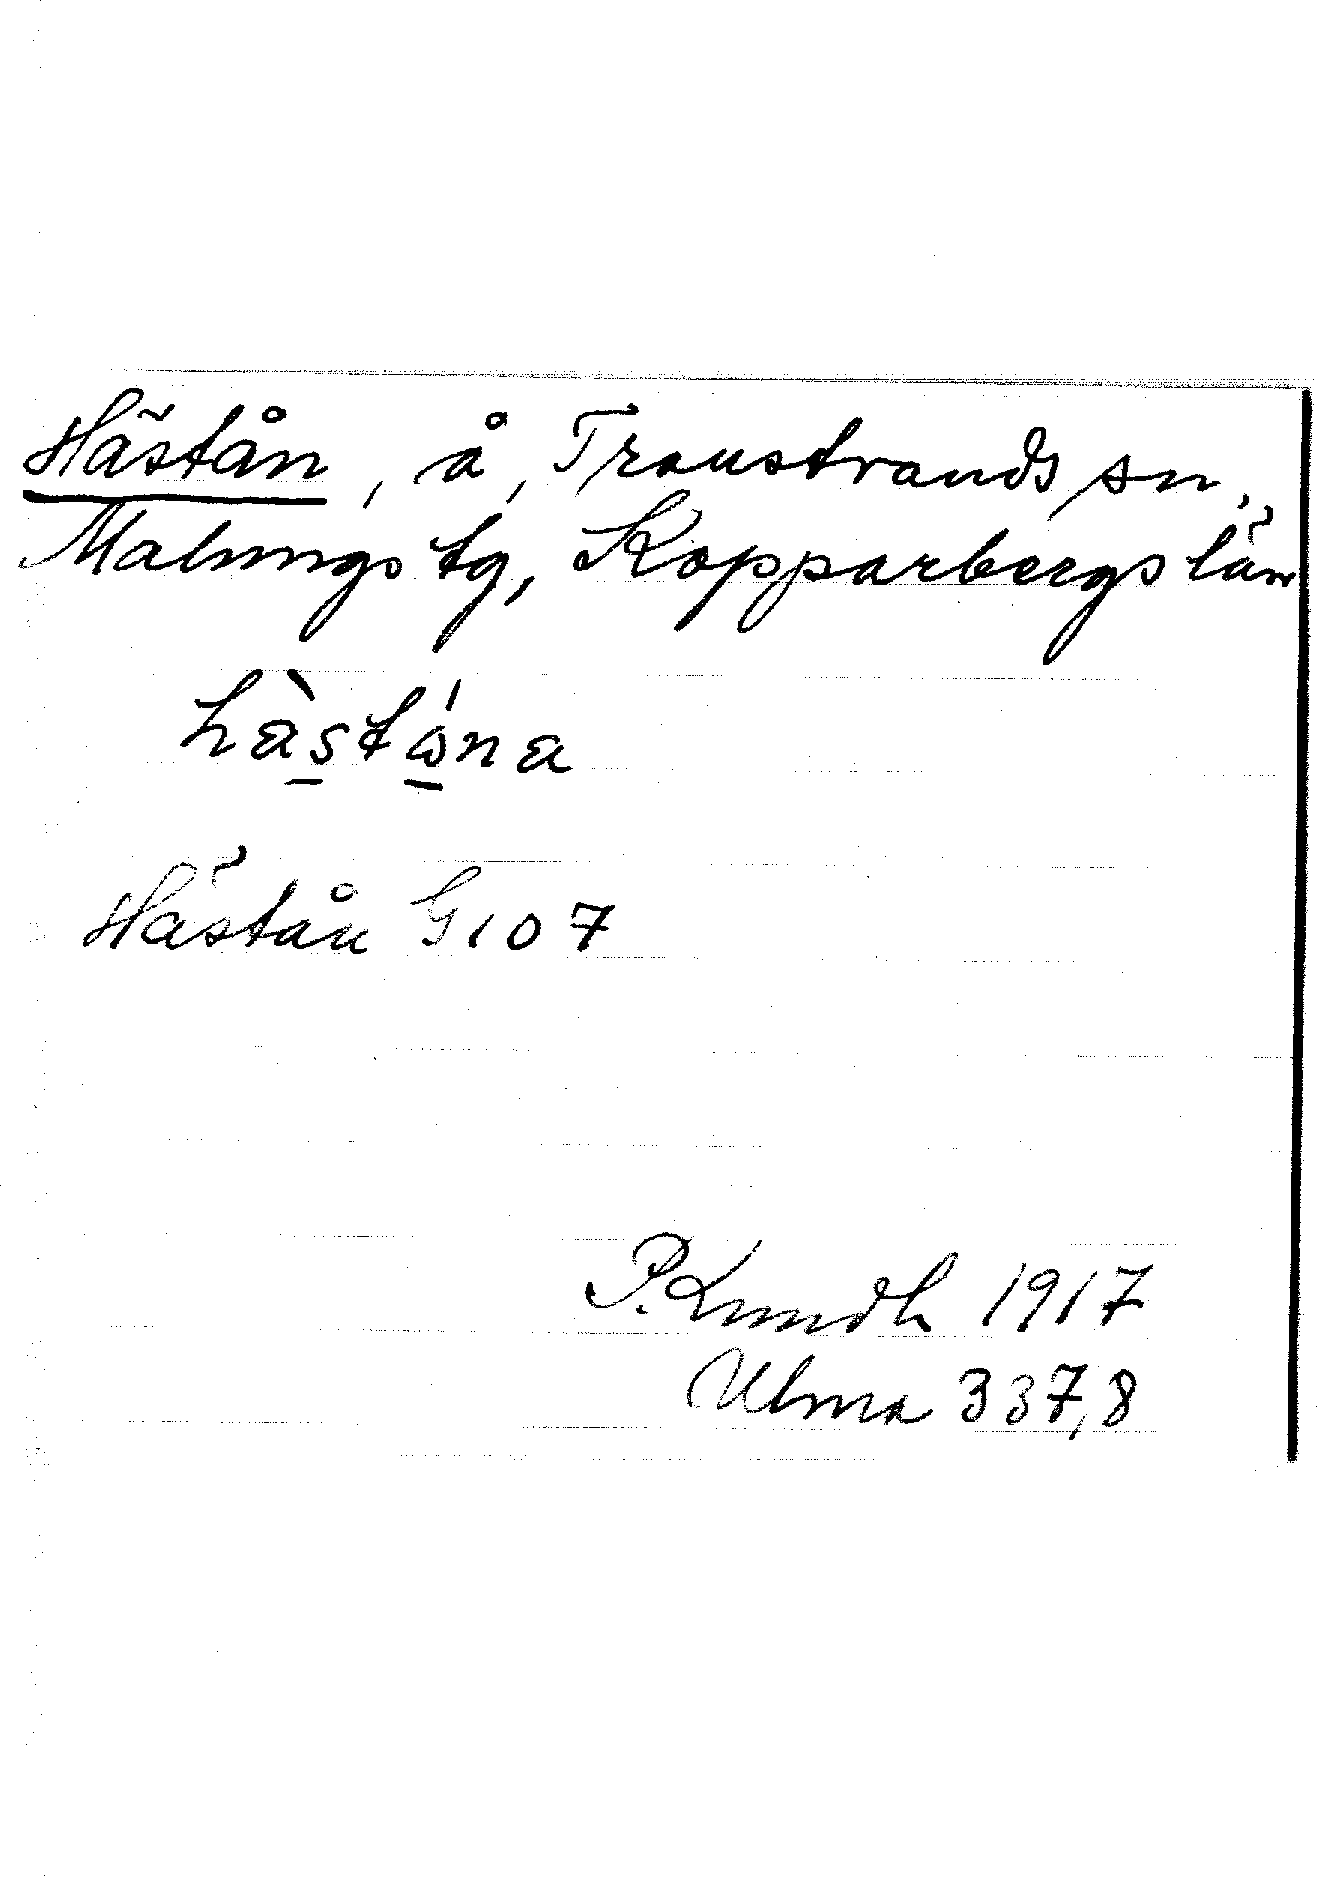 Hästån, å, Transtrands sn,
Malungs tg, Kopparbergs län
hàstǻna
Hästån G107
P. Lundh 1917
Ulma 337,8